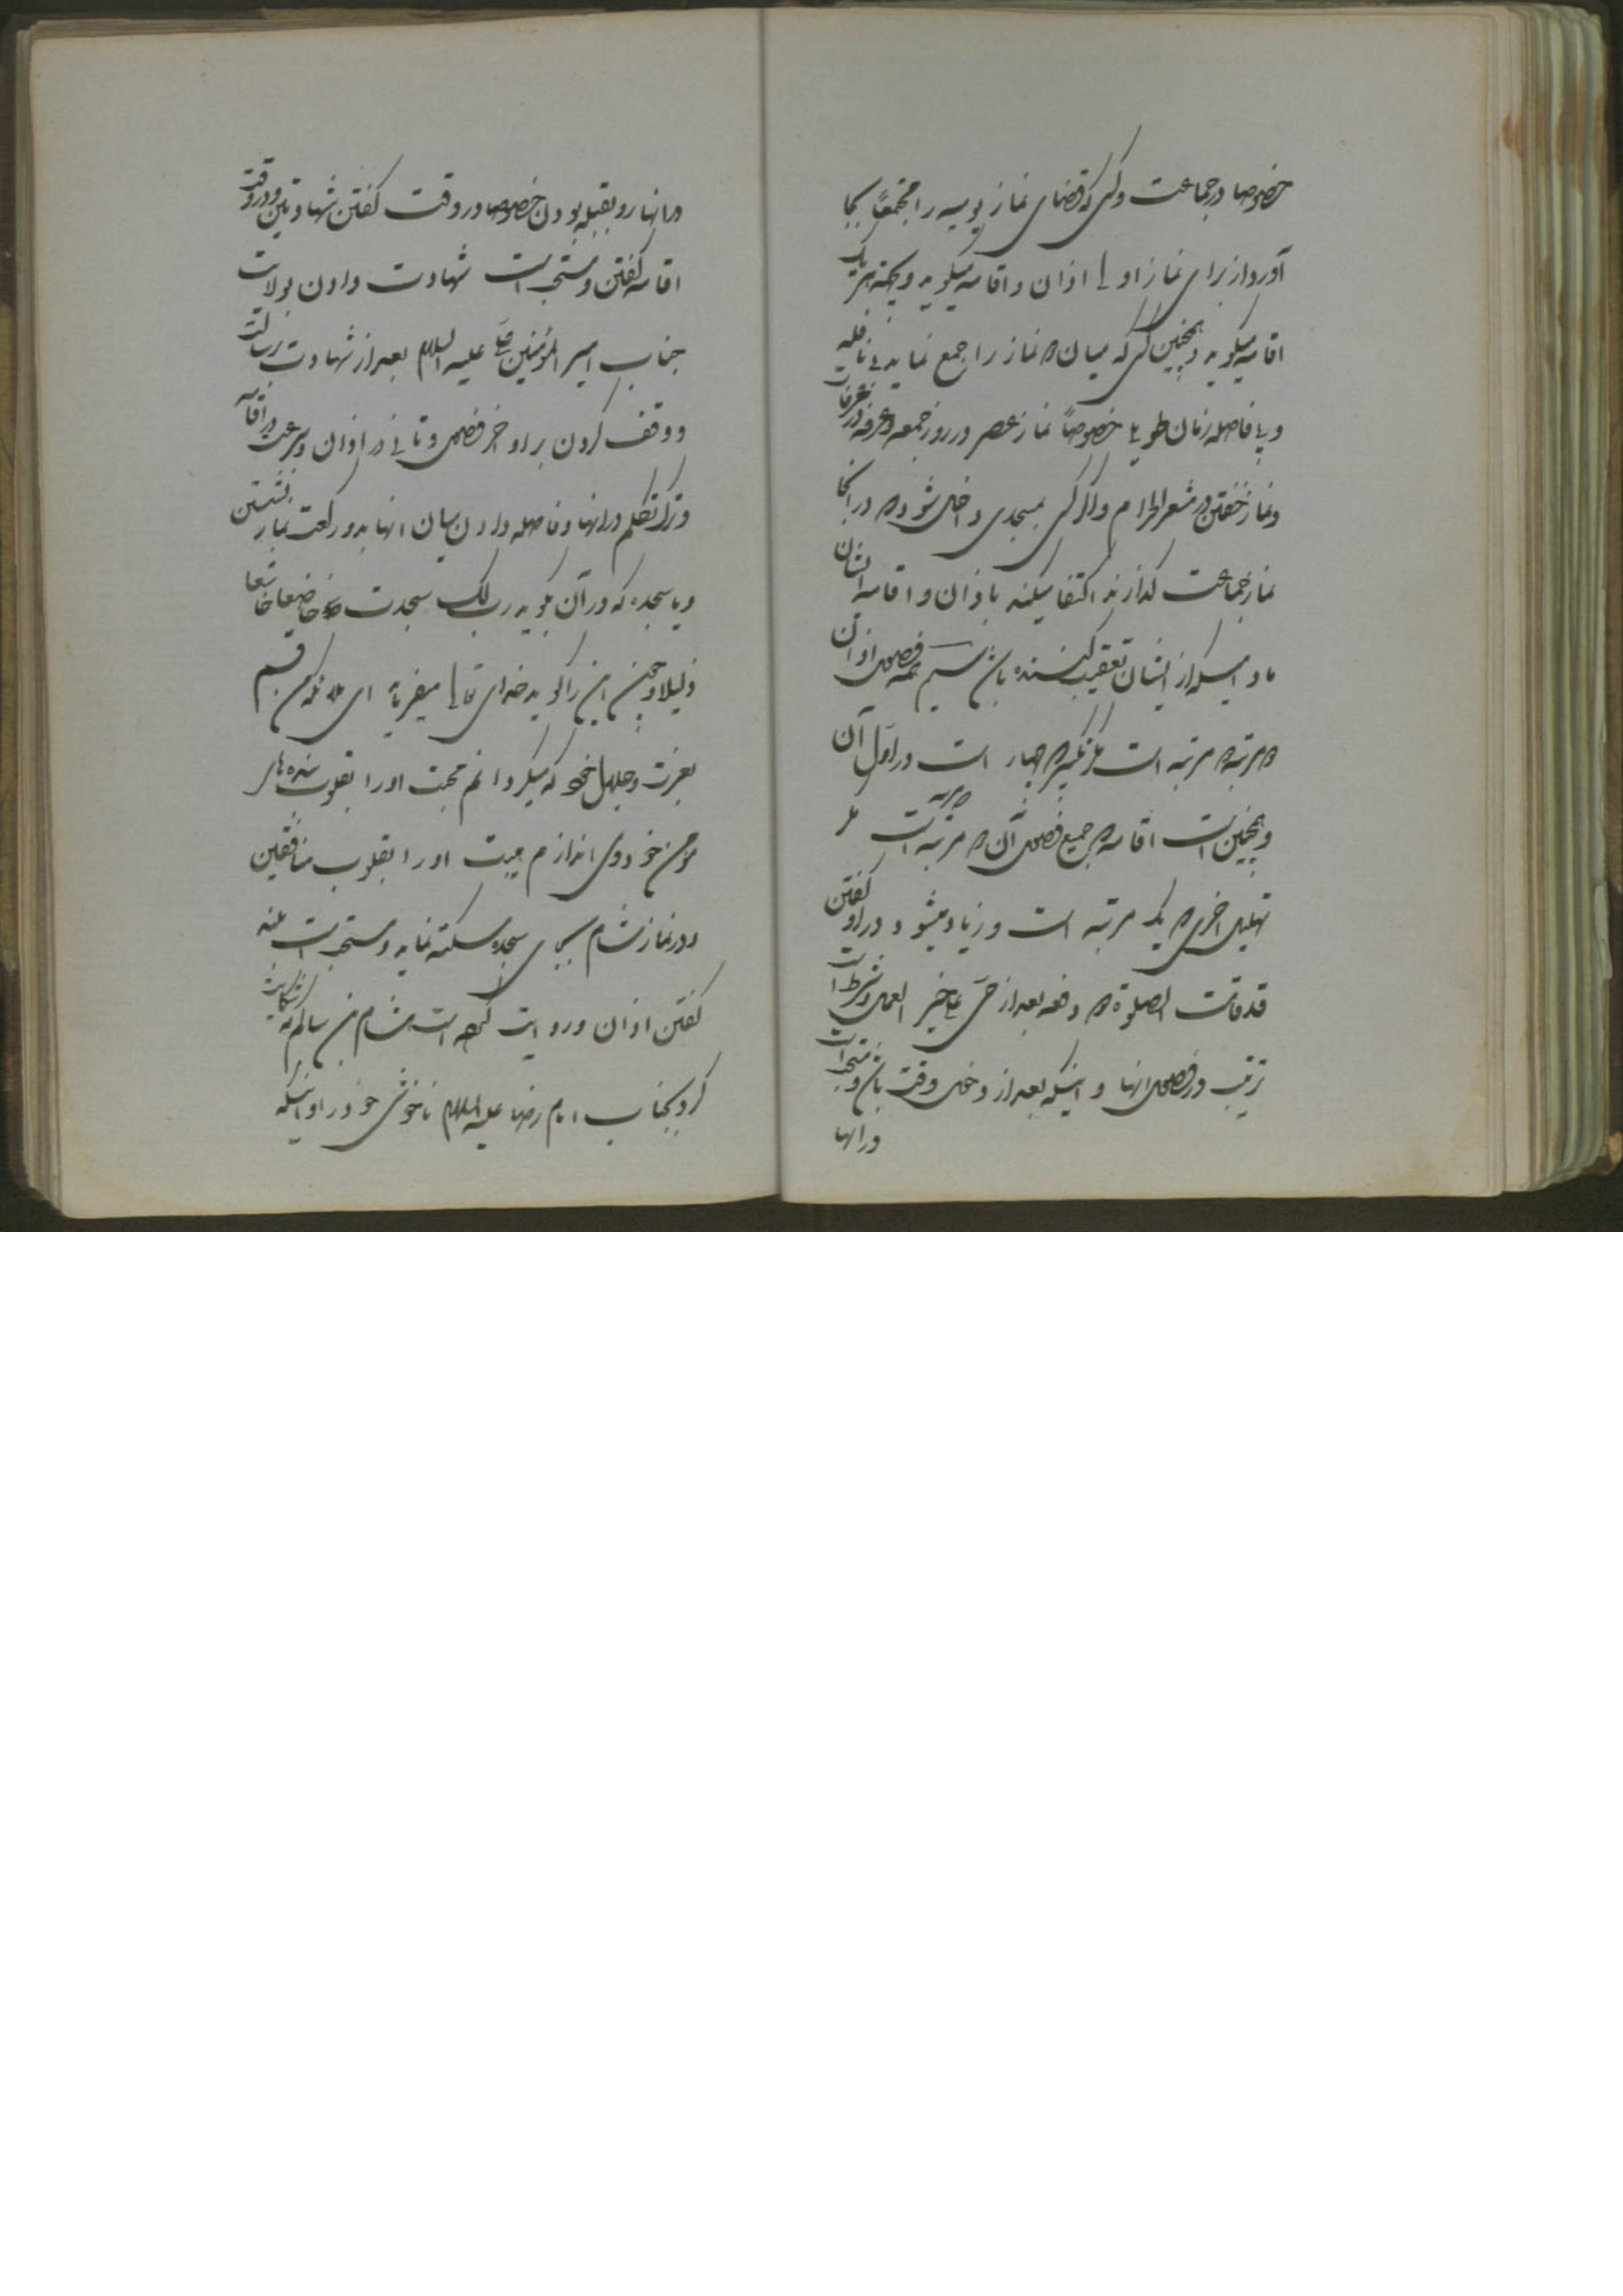 خصوصا در جماعت و کسی که قضای نماز یومیه را مجتمعاً بجا
آورد از برای نماز اولی اذان و اقامه میگوید و بجهة هر یک
اقامه میگوید و همچنین کسی که میان دو نماز را جمع نماید بی نافله
و بی فاصله زمان طویلی خصوصاً نماز عصر در روز جمعه و عرفه در عرفات
و نماز خفتن در مشعر الحرام و اگر کسی بمسجدی داخل شود که در آنجا
نماز جماعت گذارند اکتفا میکند باذان و اقامه ایشان
مادامیکه از ایشان تعقیب کننده باشد فصول اذان
دو مرتبه دو مرتبه است مگر تکبیر که چهار است در اول آن
و همچنین است اقامه که جمیع فصول آن دو مرتبه است مگر
تهلیل آخری که یک مرتبه است و زیاد میشود در او گفتن
قد قامت الصلوة دو دفعه بعد از حی علی خیر العمل و شرط است
ترتیب در فصول انها و اینکه بعد از دخول وقت باشد و مستحب است
در انها
در انها رو بقبله بودن خصوصا در وقت گفتن شهادتین و در وقت
اقامه گفتن و مستحب است شهادت دادن بولایت
جناب امیر المؤمنین علی علیه السلام بعد از شهادت برسالت
و وقف کردن بر اواخر فصول و تانی در اذان و سرعت در اقامه
و ترک تکلم در انها و فاصله دادن میان انها بدو رکعت نماز نشستن
و یا سجده که در آن بگوید رب لک سجدت خاضعا خاشعا
ذلیلا و چون این را گوید خدای تعالی میفرماید ای ملائکه من قسم
بعزت و جلال خود که میگردانم محبت او را بقلوب بنده های
مؤمن خود و می اندازم هیبت او را بقلوب منافقین
و در نماز شام بجای سجده سکته نماید و مستحب است بلند
گفتن اذان و روایت کرده است هشام بن سالم که شکایت
کرد بجناب امام رضا علیه السلام ناخوشی خود را و اینکه